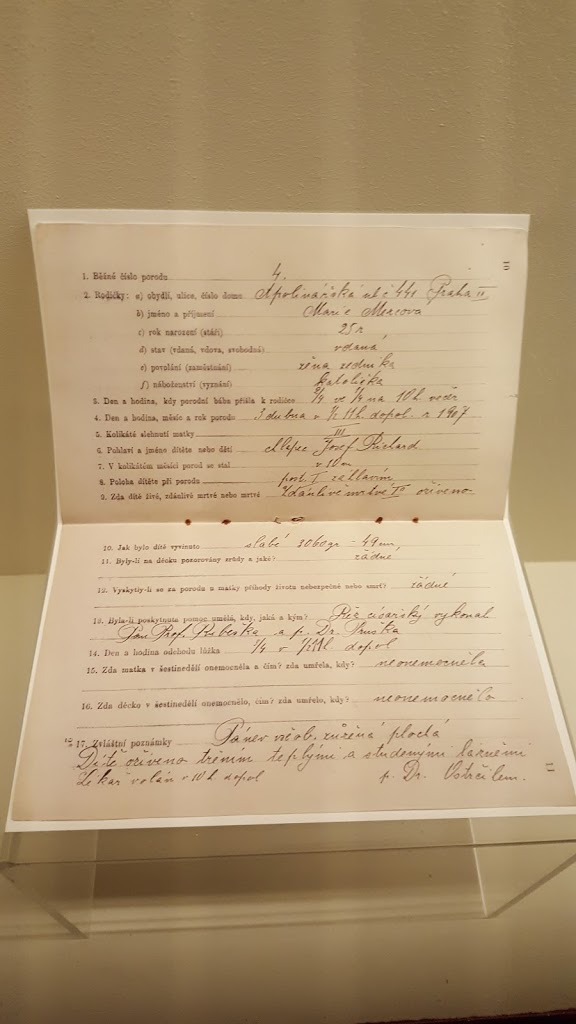 10
1. Běžné číslo porodu 4.
2. Rodičky: a) obydlí, ulice, číslo domu Apolinářská ul č 441 Praha II
b) jméno a příjmení Marie Mercova
c) rok narození (stáří) 25 r
d) stav (vdaná, vdova, svobodná) vdaná
e) povolání (zaměstnání) žena zedníka
f) náboženství (vyznání) katolička
3. Den a hodina, kdy porodní bába přišla k rodičce na 10 h večer
4. Den a hodina, měsíc a rok porodu 3 dubna v ½ 11 h. dopol. r 1907
5. Kolikáté slehnutí matky III
6. Pohlaví a jméno dítěte nebo dětí chlapec Josef Richard
7. V kolikátém měsíci porod se stal v 10 m
8. Poloha dítěte při porodu I záhlavím
9. Zda dítě živé, zdánlivě mrtvé nebo mrtvé Zdánlivě mrtvé oživeno
10. Jak bylo dítě vyvinuto slabé 3060 gr - 49 cm,
11. Byly-li na děcku pozorovány zrůdy a jaké? žádné
12. Vyskytly-li se za porodu u matky příhody života nebezpečné nebo smrť? žádné
13. Byla-li poskytnuta pomoc umělá, kdy, jaká a kým? Řez císařský vykonal
Pan Prof. Rubeška a p. Dr. Truška
14. Den a hodina odchodu lůžka 3/4 v ½11 h dopol
15. Zda matka v šestinedělí onemocněla a čím? zda umřela, kdy? neonemocněla
16. Zda děcko v šestinedělí onemocnělo, čím? zda umřelo, kdy? neonemocnělo
17. Zvláštní poznámky Pánev všeob. zúžená plochá
Dítě oživeno třením teplými a studenými lázněmi
Lékař volán v 10 h dopol p. Dr. Ostrčilem.
11